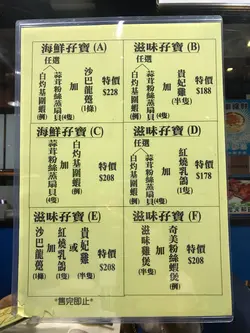 海鮮孖寶 (A)
任選
白灼基圍蝦(例)
蒜茸粉絲蒸扇貝(4隻)
加
沙巴龍躉(1條)
特價
$228
滋味孖寶 (B)
任選
白灼基圍蝦(例)
蒜茸粉絲蒸扇貝(4隻)
加
貴妃雞(半隻)
特價
$188
海鮮孖寶 (C)
蒜茸粉絲蒸扇貝(4隻)
加
白灼基圍蝦(例)
特價
$208
滋味孖寶 (D)
任選
白灼基圍蝦(例)
蒜茸粉絲蒸扇貝(4隻)
加
紅燒乳鴿(1隻)
特價
$178
滋味孖寶 (E)
沙巴龍躉(1條)
加
紅燒乳鴿(1隻)
或
貴妃雞(半隻)
特價
$208
滋味孖寶 (F)
滋味雞煲(半隻)
加
奇美粉絲蝦煲(例)
特價
$208
*售完即止*